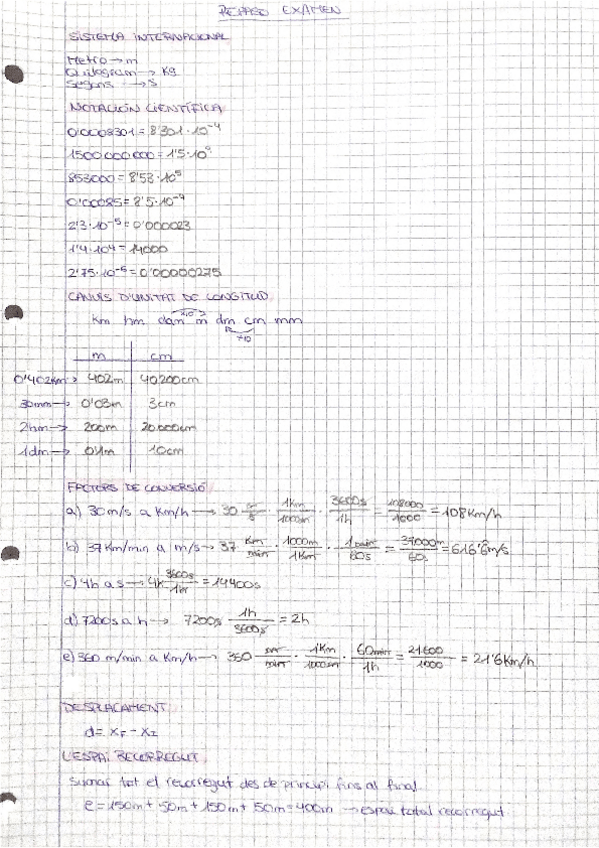 REPASO EXAMEN
SISTEMA INTERNACIONAL
Metro → m
Quilogram → Kg
Segons → s
NOTACIÓN CIENTÍFICA
0'0008301 = 8'301 · 10⁻⁴
1500000000 = 1'5 · 10⁹
853000 = 8'53 · 10⁵
0'00085 = 8'5 · 10⁻⁴
2'3 · 10⁻⁵ = 0'000023
1'4 · 10⁴ = 14000
2'75 · 10⁻⁶ = 0'00000275
CANVIS D'UNITAT DE LONGITUD
x10
Km hm dam m dm cm mm
÷10
m cm
0'402Km → 402m 40200cm
30mm → 0'03m 3cm
2hm → 200m 20.000cm
1dm → 0'1m 10cm
FACTORS DE CONVERSIÓ
a) 30 m/s a Km/h → 30 m/s · 1Km/1000m · 3600s/1h = 108000/1000 = 108 Km/h
b) 37 Km/min a m/s → 37 Km/min · 1000m/1Km · 1min/60s = 37000m/60s = 616'6 m/s
c) 4h a s → 4h · 3600s/1h = 14400s
d) 7200s a h → 7200s · 1h/3600s = 2h
e) 360 m/min a Km/h → 360 m/min · 1Km/1000m · 60min/1h = 21600/1000 = 21'6 Km/h
DESPLAÇAMENT
d = XF - XI
L'ESPAI RECORREGUT
Sumar tot el recorregut des de principi fins al final
e = 150m + 50m + 150m + 50m = 400m → espai total recorregut